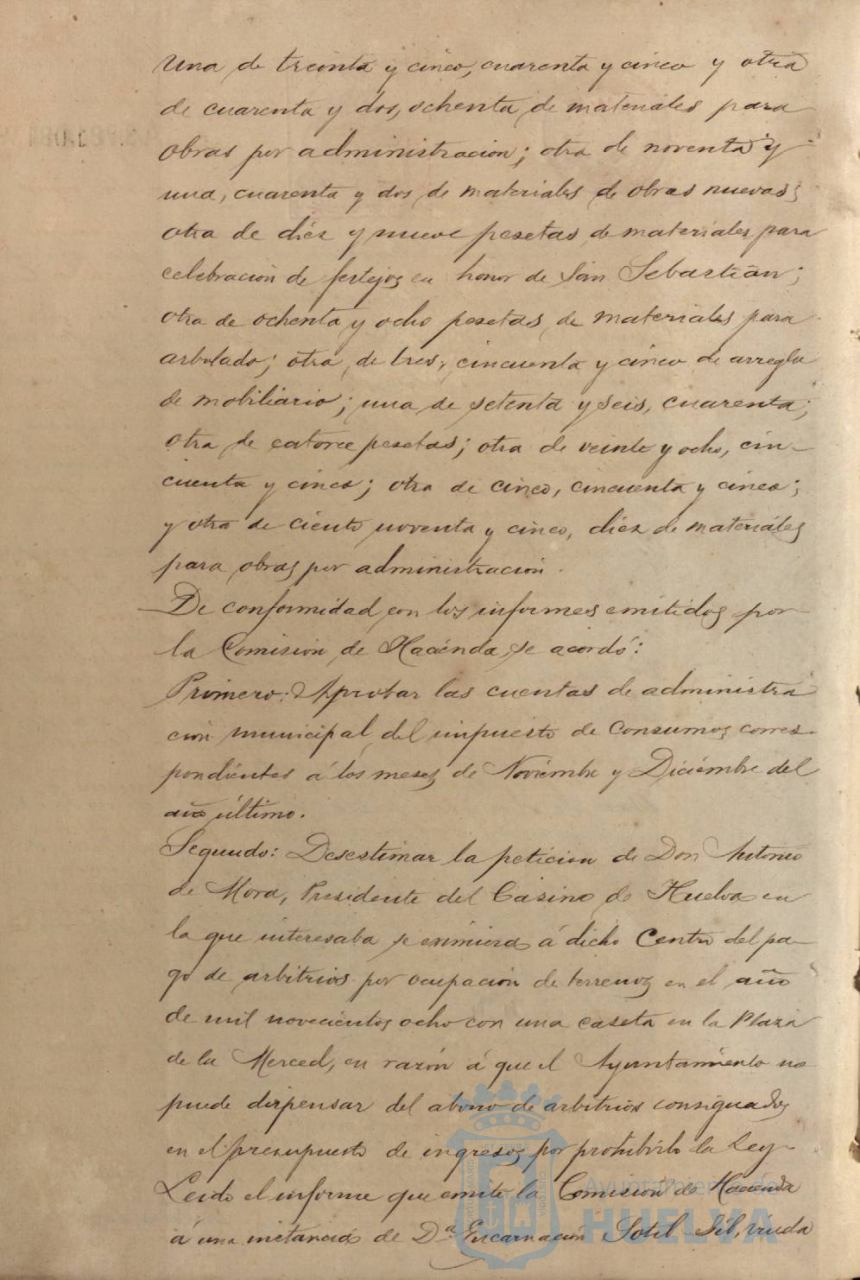 una de treinta y cinco, cuarenta y cinco y otra
de cuarenta y dos, ochenta de materiales para
obras por administracion; otra de noventa y
una, cuarenta y dos de materiales de obras nuevas;
otra de diez y nueve pesetas de materiales para
celebracion de festejos en honor de San Sebastian;
otra de ochenta y ocho pesetas de materiales para
arbolado; otra de tres, cincuenta y cinco de arreglo
de mobiliario; una de setenta y seis, cuarenta;
otra de catorce pesetas; otra de veinte y ocho, cin-
cuenta y cinco; otra de cinco, cincuenta y cinco;
y otra de ciento noventa y cinco, diez de materiales
para obras por administracion.
De conformidad con los informes emitidos por
la Comisión de Hacienda se acordó:
Primero: Aprobar las cuentas de administra
cion municipal del impuesto de Consumos corres-
pondientes á los meses de Noviembre y Diciembre del
año último.
Segundo: Desestimar la peticion de Don Antonio
de Mora, Presidente del Casino de Huelva en
la que interesaba se eximiera á dicho Centro del pa-
go de arbitrios por ocupación de terrenos en el año
de mil novecientos ocho con una caseta en la Plaza
de la Merced, en razón á que el Ayuntamiento no
puede dispensar del abono de arbitrios consignados
en el presupuesto de ingresos por prohibirlo la Ley-
Leido el informe que emite la Comisión de Hacienda
á una instancia de Dª Encarnación Sotil Gil, viuda
Ayuntamiento de
HUELVA